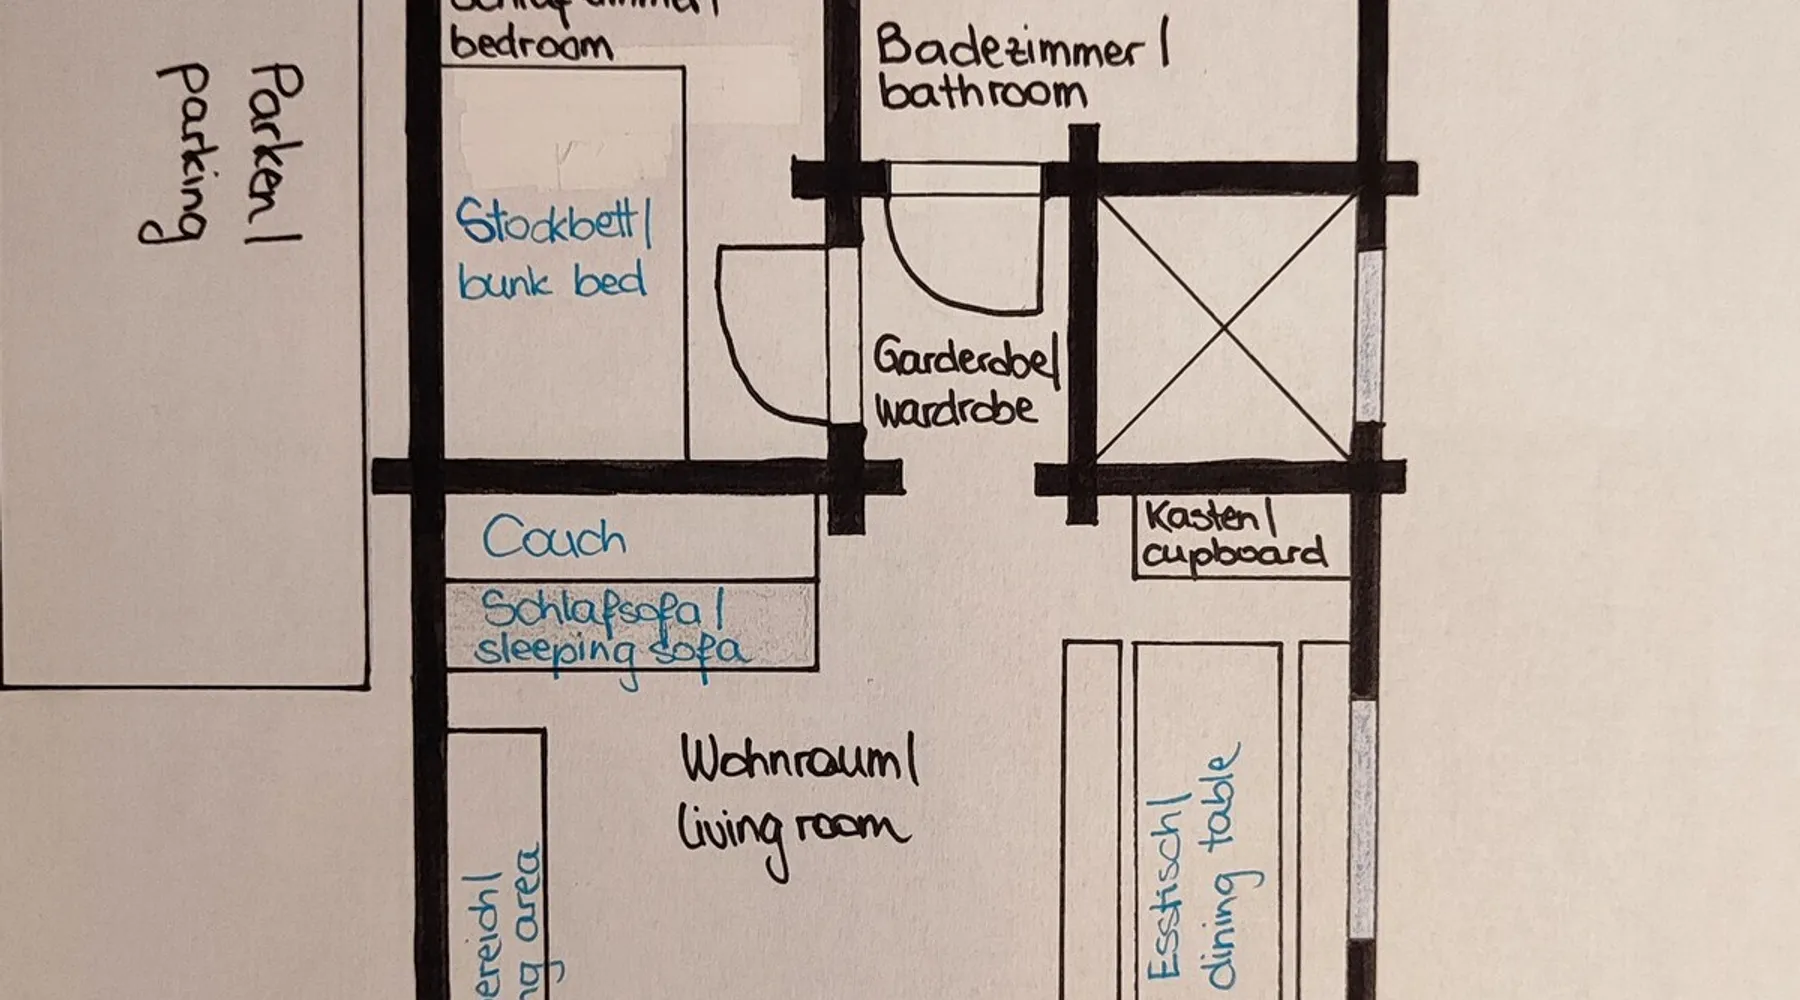 bedroom
Badezimmer|
bathroom
Parken|
parking
Stockbett|
bunk bed
Garderobe|
wardrobe
Couch
Schlafsofa|
sleeping sofa
Kasten|
cupboard
Wohnraum|
living room
Esstisch|
dining table
area